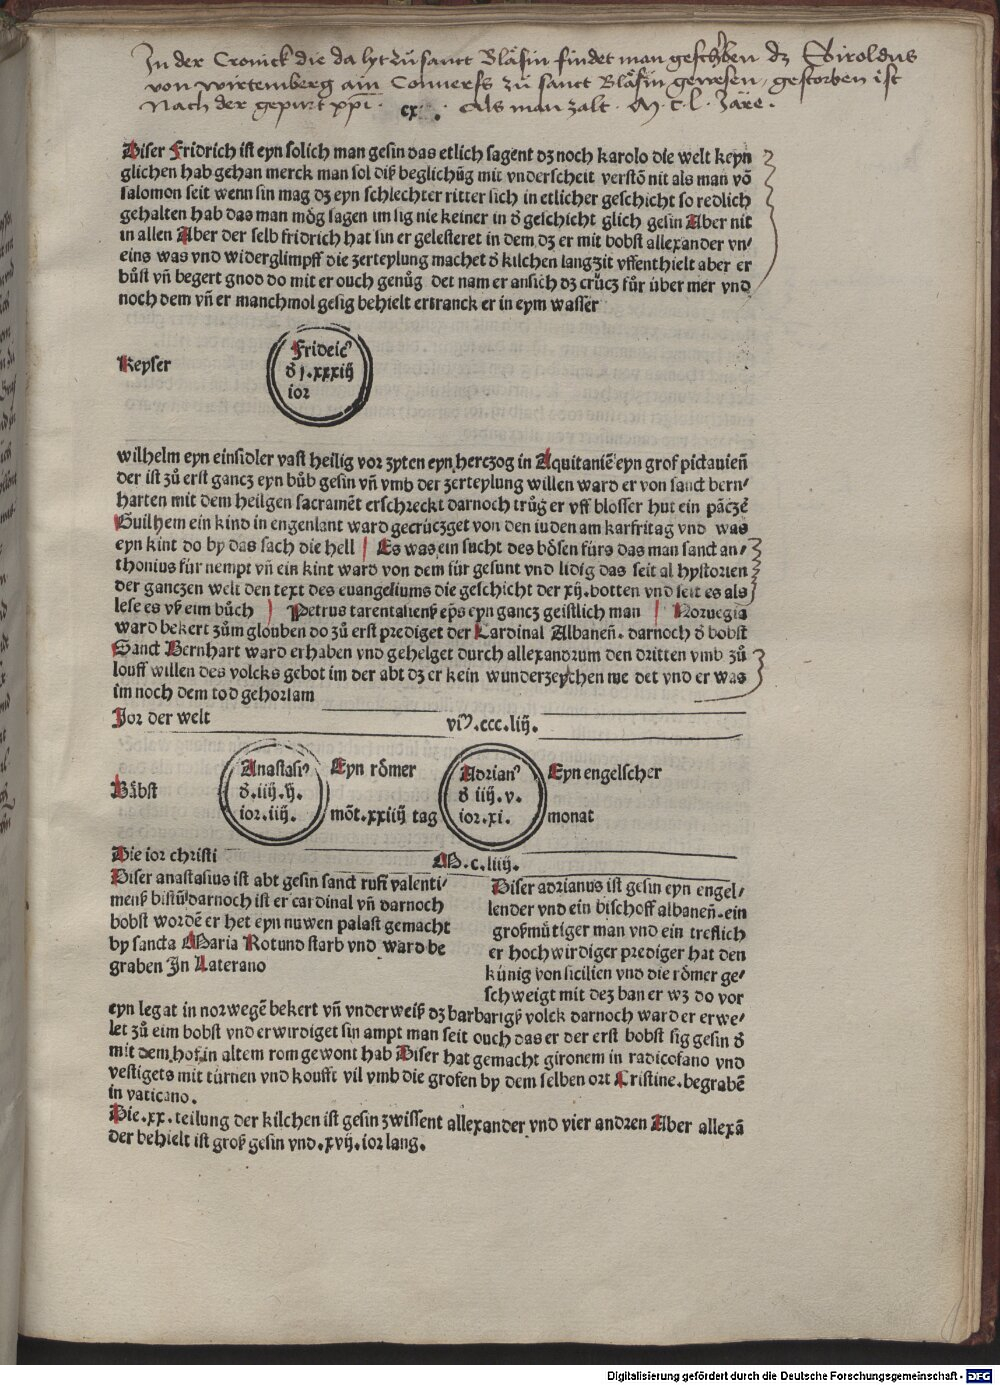 In der Cronick die da lyt zů sanct Blåsin findet man geschriben dz Wiroldus
von wirtemberg ain Conuerss zů sanct Blåsin gewesen, gestorben ist
Nach der gepurt xpi. Als man zalt. M. c. l. Jare.
cx.
Diser Fridrich ist eyn solich man gesin das etlich sagent dz noch karolo die welt keyn
glichen hab gehan merck man sol diß beglichūg mit vnderscheit verstō nit als man vō
salomon seit wenn sin mag dz eyn schlechter ritter sich in etlicher geschicht so redlich
gehalten hab das man mög sagen im sig nie keiner in d geschicht glich gesin Aber nit
in allen Aber der selb fridrich hat sin er gelesteret in dem dz er mit bobst allexander vn⸗
eins was vnd widerglimpff die zerteylung machet d kilchen langzit vffenthielt aber er
bůst vn̄ begert gnod do mit er ouch genůg det nam er an sich dz crücz für über mer vnd
noch dem vn̄ er manchmol gesig behielt ertranck er in eym wasser
Keyser
Frideic9
d j. xxxiij
ior
wilhelm eyn einsidler vast heilig vor zyten eyn herczog in Aquitaniē eyn grof pictauien̄
der ist zů erst gancz eyn bůb gesin vn̄ vmb der zerteylung willen ward er von sanct bern⸗
harten mit dem heilgen sacramēt erschreckt darnoch trůg er vff blosser hut ein pāczē
Guilhem ein kind in engenlant ward gecrüczget von den iuden am karfritag vnd was
eyn kint do by das sach die hell | Es was ein sucht des bösen fürs das man sanct an⸗
thonius für nempt vn̄ ein kint ward von dem für gesunt vnd lidig das seit al hystorien
der ganczen welt den text des euangeliums die geschicht der xij. botten vnd seit es als
lese es vß eim bůch | Petrus tarentaliensꝭ ep̄s eyn gancz geistlich man | Noruegia
ward bekert zům glouben do zů erst prediget der Cardinal Albanen̄. darnoch d bobst
Sanct Bernhart ward erhaben vnd gehelget durch allexandrum den dritten vmb zů
louff willen des volcks gebot im der abt dz er kein wunderzeychen me det vnd er was
im noch dem tod gehorsam
Jor der welt
vim. ccc. liij.
Båbst
Anastasi9
d. iiij. ij.
ior. iij.
Eyn römer
mōt. xxiiij tag
Adrian9
d iiij. v.
ior. xi.
Eyn engelscher
monat
Die ior christi
M. c. liij.
Diser anastasius ist abt gesin sanct rufi valenti⸗
mensꝭ bistū darnoch ist er cardinal vn̄ darnoch
bobst wordē er het eyn nuwen palast gemacht
by sancta Maria Rotund starb vnd ward be
graben In Laterano
Diser adrianus ist gesin eyn engel⸗
lender vnd ein bischoff albanen̄. ein
großmütiger man vnd ein treflich
er hochwirdiger prediger hat den
künig von sicilien vnd die römer ge⸗
schweigt mit dez ban er wz do vor
eyn legat in norwegē bekert vn̄ vnderweiß dz barbarigß volck darnoch ward er erwe⸗
let zů eim bobst vnd erwirdiget sin ampt man seit ouch das er der erst bobst sig gesin d
mit dem hof in altem rom gewont hab Diser hat gemacht gironem in radicofano vnd
vestigets mit türnen vnd koufft vil vmb die grofen by dem selben ort Cristine. begrabē
in vaticano.
Die. xx. teilung der kilchen ist gesin zwissent allexander vnd vier andren Aber allexā
der behielt ist groß gesin vnd. xvij. ior lang.
Digitalisierung gefördert durch die Deutsche Forschungsgemeinschaft - DFG